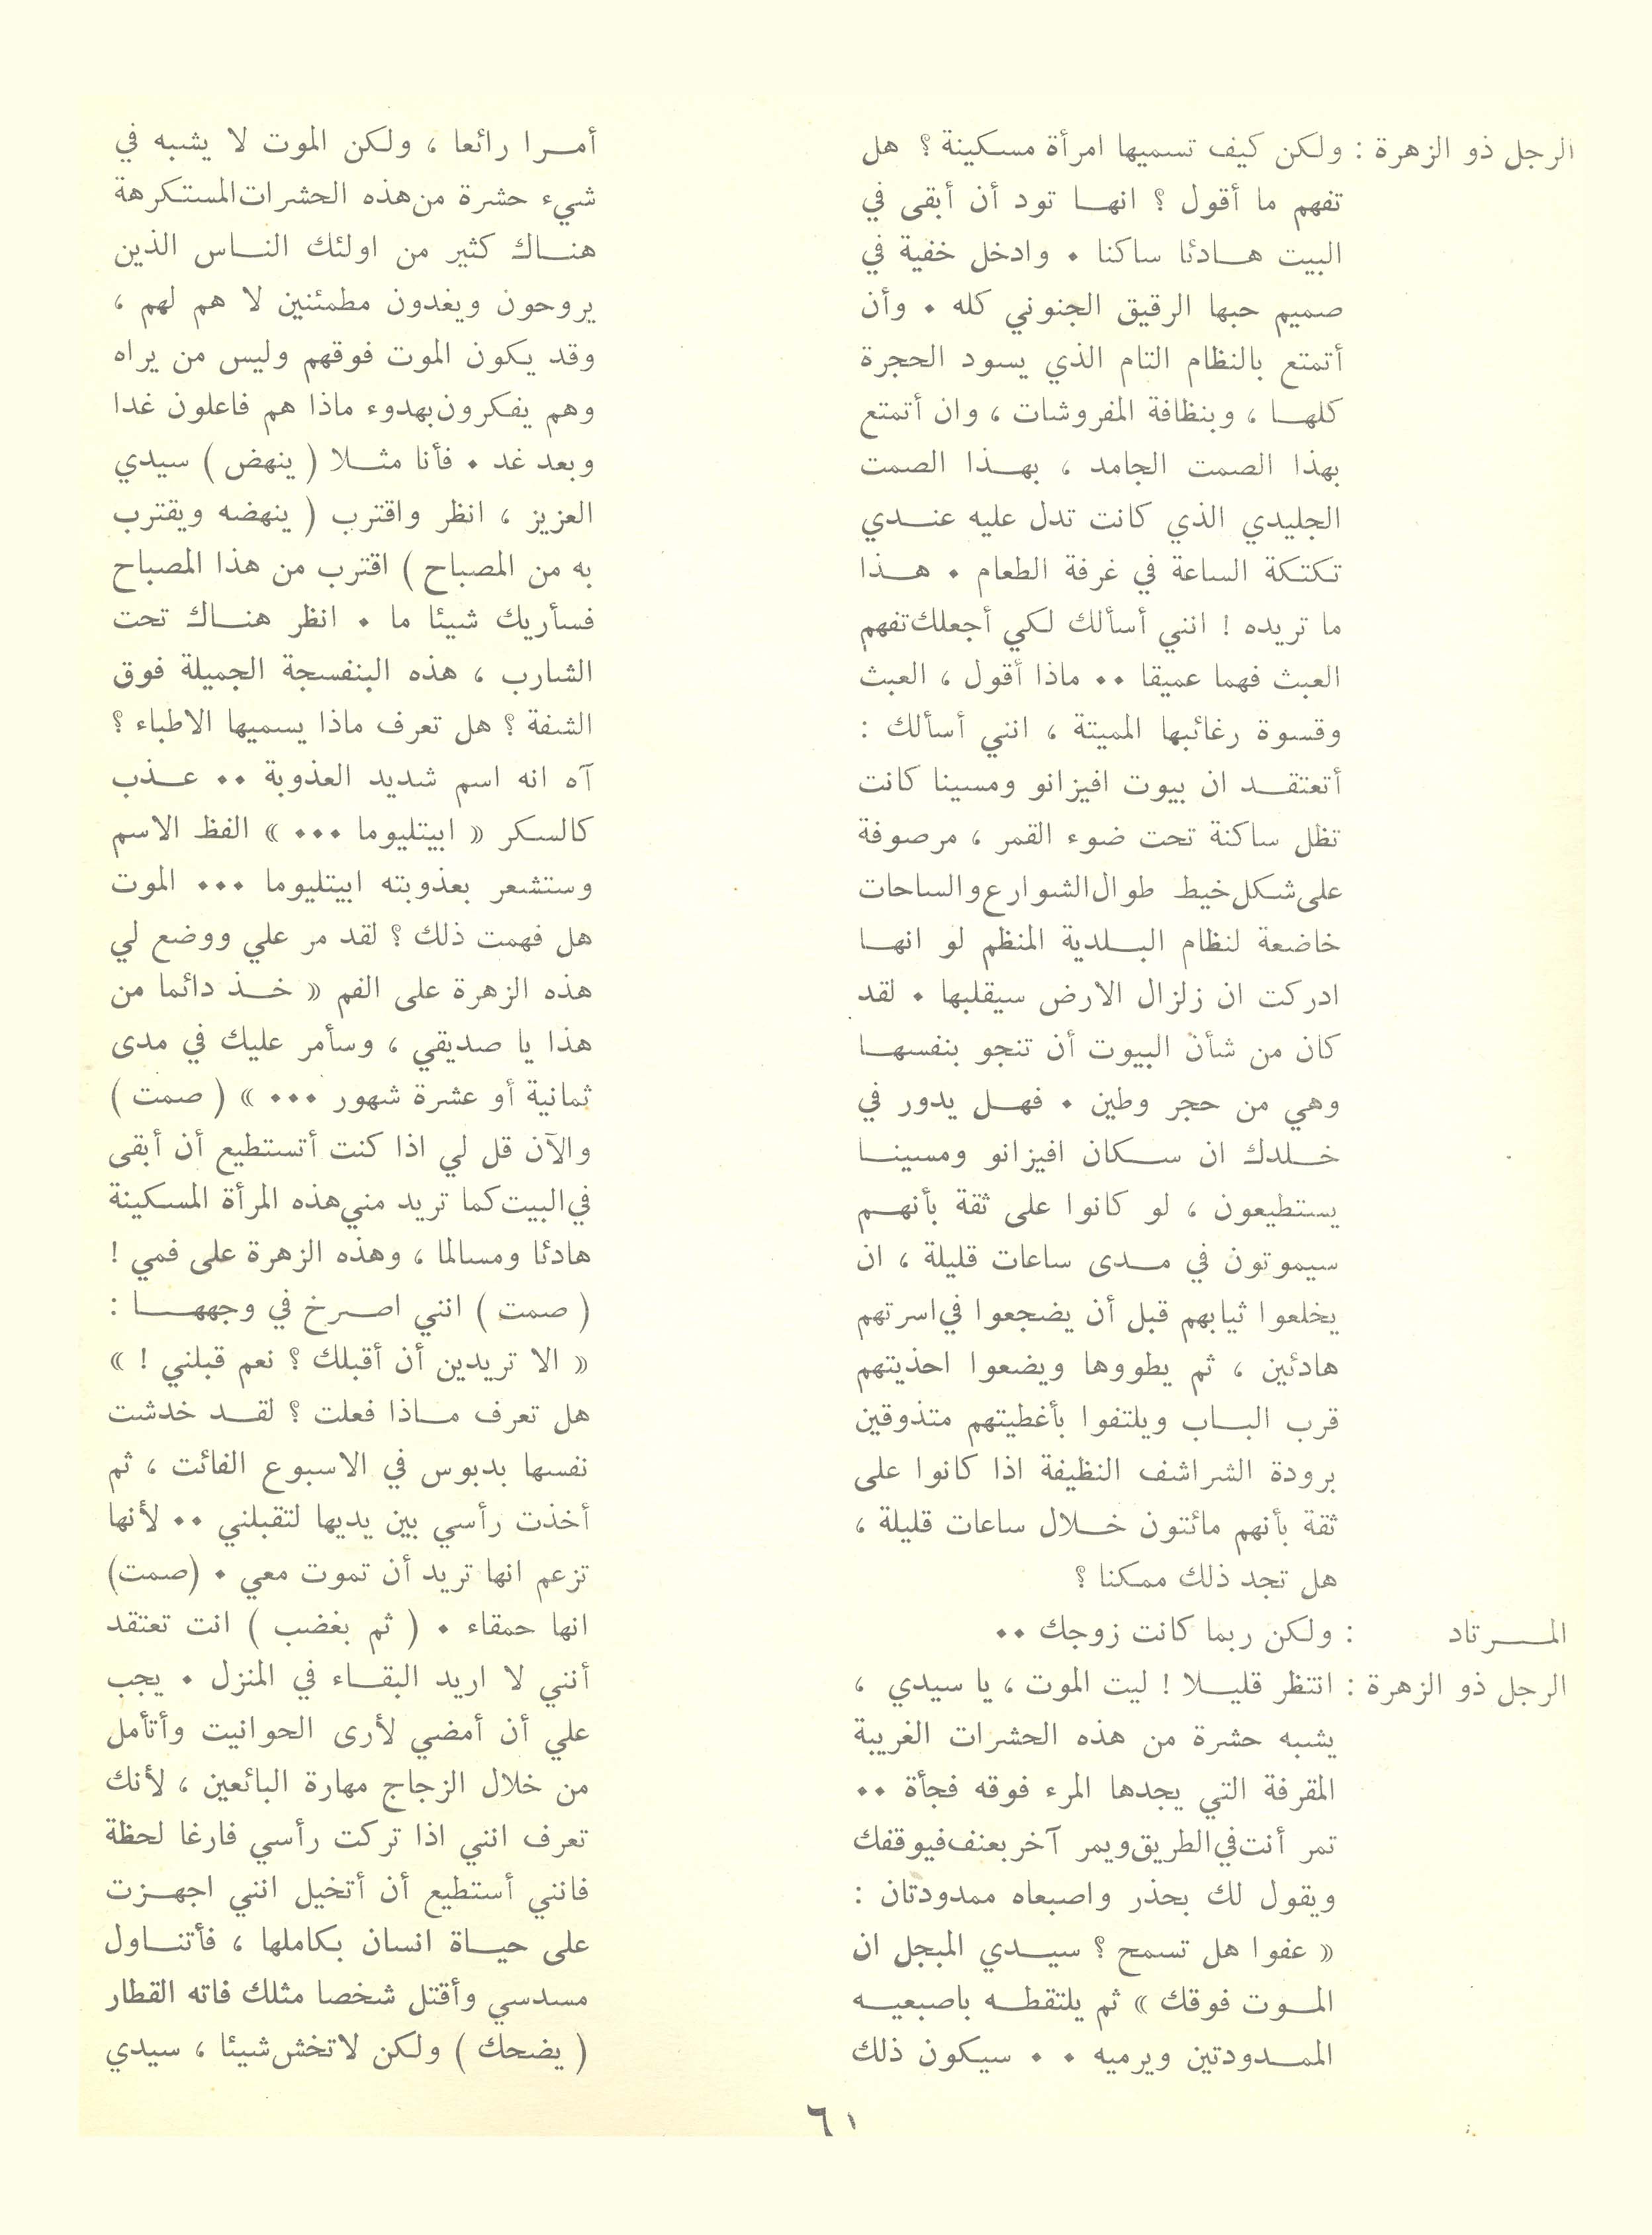 الرجل ذو الزهرة : ولكن كيف تسميها امرأة مسكينة ؟ هل
تفهم ما أقول ؟ انها تود أن أبقى في
البيت هادئا ساكنا . وادخل خفية في
صميم حبها الرقيق الجنوني كله . وأن
أتمتع بالنظام التام الذي يسود الحجرة
كلها ، وبنظافة المفروشات ، وان أتمتع
بهذا الصمت الجامد ، بهذا الصمت
الجليدي الذي كانت تدل عليه عندي
تكتكة الساعة في غرفة الطعام . هذا
ما تريده ! انني أسألك لكي أجعلك تفهم
العبث فهما عميقا .. ماذا أقول ، العبث
وقسوة رغائبها المميتة ، انني أسألك :
أتعتقد ان بيوت افيزانو ومسينا كانت
تظل ساكنة تحت ضوء القمر ، مرصوفة
على شكل خيط طوال الشوارع والساحات
خاضعة لنظام البلدية المنظم لو انها
ادركت ان زلزال الارض سيقلبها . لقد
كان من شأن البيوت أن تنجو بنفسها
وهي من حجر وطين . فهل يدور في
خلدك ان سكان افيزانو ومسينا
يستطيعون ، لو كانوا على ثقة بأنهم
سيموتون في مدى ساعات قليلة ، ان
يخلعوا ثيابهم قبل أن يضجعوا في اسرتهم
هادئين ، ثم يطووها ويضعوا احذيتهم
قرب الباب ويلتفوا بأغطيتهم متذوقين
برودة الشراشف النظيفة اذا كانوا على
ثقة بأنهم مائتون خلال ساعات قليلة ،
هل تجد ذلك ممكنا ؟
المرتاد : ولكن ربما كانت زوجك ..
الرجل ذو الزهرة : انتظر قليلا ! ليت الموت ، يا سيدي ،
يشبه حشرة من هذه الحشرات الغريبة
المقرفة التي يجدها المرء فوقه فجأة ..
تمر أنت في الطريق ويمر آخر بعنف فيوقفك
ويقول لك بحذر واصبعاه ممدودتان :
« عفوا هل تسمح ؟ سيدي المبجل ان
الموت فوقك » ثم يلتقطه باصبعيه
الممدودتين ويرميه . . سيكون ذلك
أمرا رائعا ، ولكن الموت لا يشبه في
شيء حشرة من هذه الحشرات المستكرهة
هناك كثير من اولئك الناس الذين
يروحون ويغدون مطمئنين لا هم لهم ،
وقد يكون الموت فوقهم وليس من يراه
وهم يفكرون بهدوء ماذا هم فاعلون غدا
وبعد غد . فأنا مثلا ( ينهض ) سيدي
العزيز ، انظر واقترب ( ينهضه ويقترب
به من المصباح ) اقترب من هذا المصباح
فسأريك شيئا ما . انظر هناك تحت
الشارب ، هذه البنفسجة الجميلة فوق
الشفة ؟ هل تعرف ماذا يسميها الاطباء ؟
آه انه اسم شديد العذوبة .. عذب
كالسكر « ابيتليوما ... » الفظ الاسم
وستشعر بعذوبته ابيتليوما ... الموت
هل فهمت ذلك ؟ لقد مر علي ووضع لي
هذه الزهرة على الفم « خذ دائما من
هذا يا صديقي ، وسأمر عليك في مدى
ثمانية أو عشرة شهور ... » ( صمت )
والآن قل لي اذا كنت أتستطيع أن أبقى
في البيت كما تريد مني هذه المرأة المسكينة
هادئا ومسالما ، وهذه الزهرة على فمي !
( صمت ) انني اصرخ في وجهها :
« الا تريدين أن أقبلك ؟ نعم قبلني ! »
هل تعرف ماذا فعلت ؟ لقد خدشت
نفسها بدبوس في الاسبوع الفائت ، ثم
أخذت رأسي بين يديها لتقبلني .. لأنها
تزعم انها تريد أن تموت معي . (صمت)
انها حمقاء . ( ثم بغضب ) انت تعتقد
أنني لا اريد البقاء في المنزل . يجب
علي أن أمضي لأرى الحوانيت وأتأمل
من خلال الزجاج مهارة البائعين ، لأنك
تعرف انني اذا تركت رأسي فارغا لحظة
فانني أستطيع أن أتخيل انني اجهزت
على حياة انسان بكاملها ، فأتناول
مسدسي وأقتل شخصا مثلك فاته القطار
( يضحك ) ولكن لا تخش شيئا ، سيدي
٦١